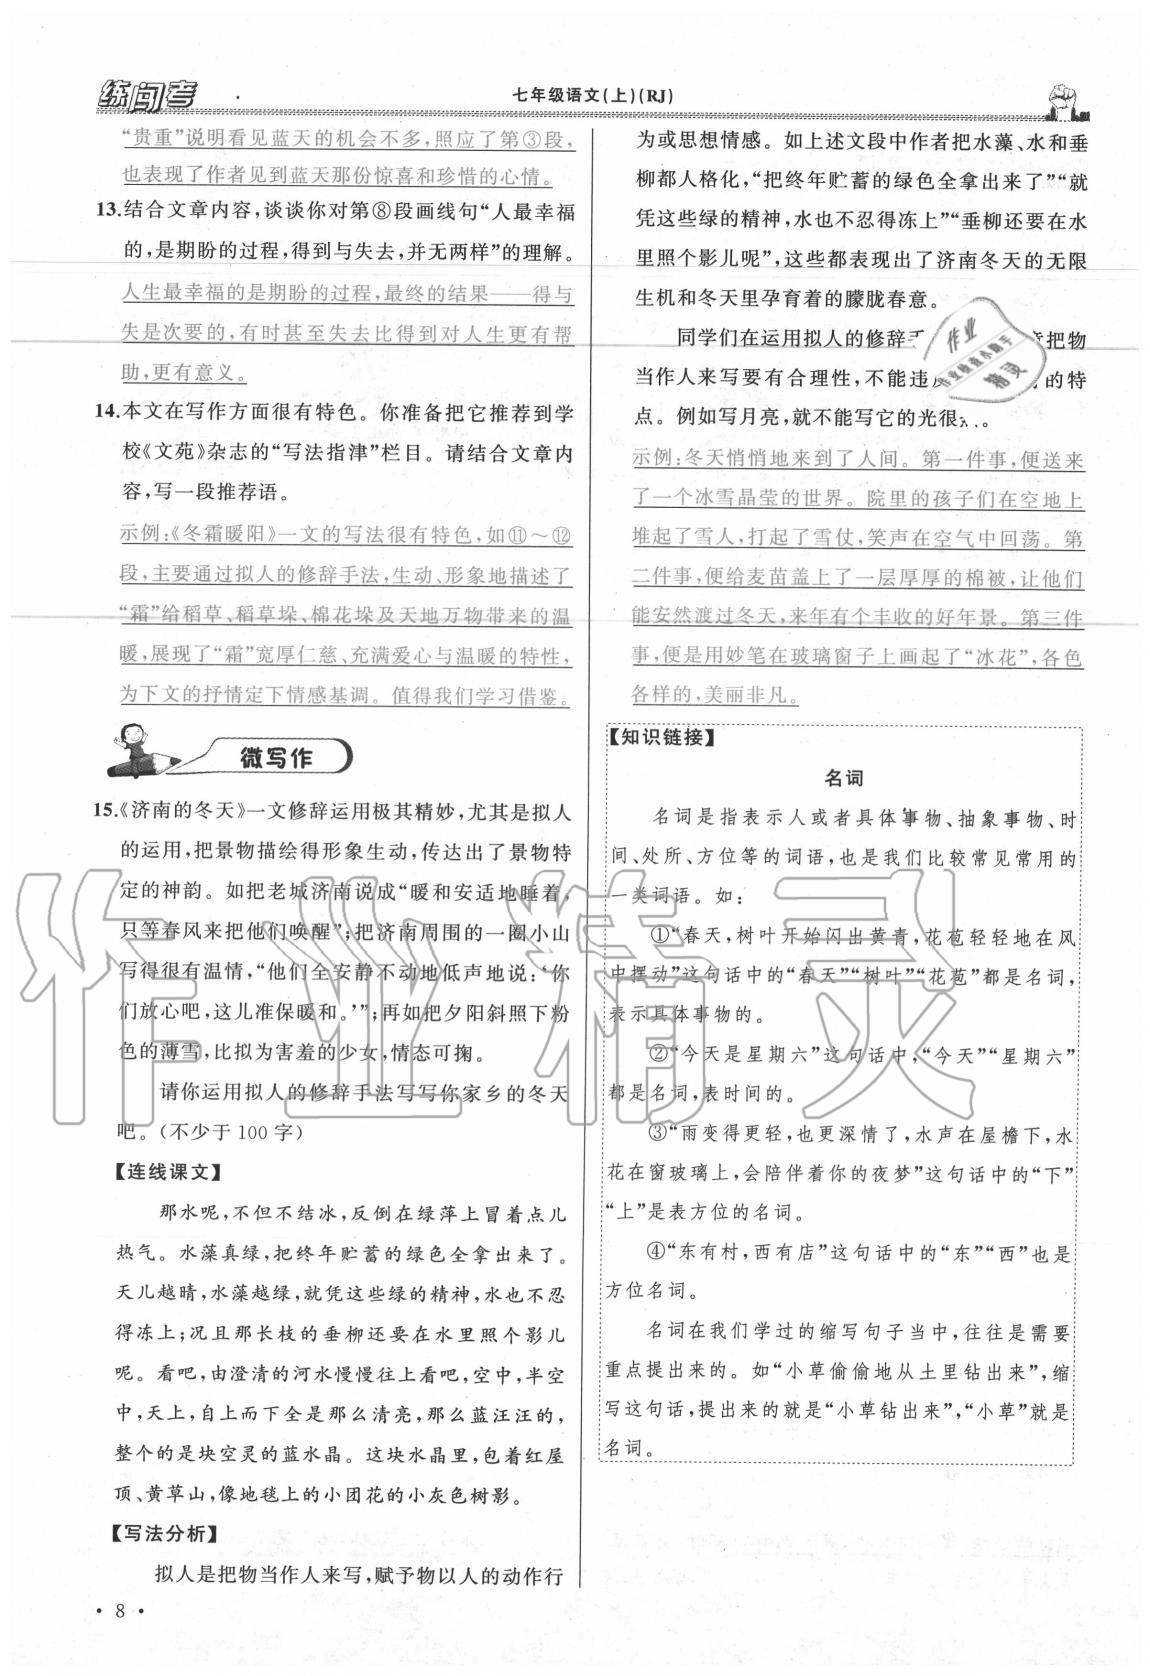 练闯考
七年级语文(上)(RJ)
“贵重”说明看见蓝天的机会不多,照应了第③段,
也表现了作者见到蓝天那份惊喜和珍惜的心情。
13.结合文章内容,谈谈你对第⑧段画线句“人最幸福
的,是期盼的过程,得到与失去,并无两样”的理解。
人生最幸福的是期盼的过程,最终的结果——得与
失是次要的,有时甚至失去比得到对人生更有帮
助,更有意义。
14.本文在写作方面很有特色。你准备把它推荐到学
校《文苑》杂志的“写法指津”栏目。请结合文章内
容,写一段推荐语。
示例:《冬霜暖阳》一文的写法很有特色,如⑪～⑫
段,主要通过拟人的修辞手法,生动、形象地描述了
“霜”给稻草、稻草垛、棉花垛及天地万物带来的温
暖,展现了“霜”宽厚仁慈、充满爱心与温暖的特性,
为下文的抒情定下情感基调。值得我们学习借鉴。
微写作
15.《济南的冬天》一文修辞运用极其精妙,尤其是拟人
的运用,把景物描绘得形象生动,传达出了景物特
定的神韵。如把老城济南说成“暖和安适地睡着,
只等春风来把他们唤醒”;把济南周围的一圈小山
写得很有温情,“他们全安静不动地低声地说:‘你
们放心吧,这儿准保暖和。’”;再如把夕阳斜照下粉
色的薄雪,比拟为害羞的少女,情态可掬。
请你运用拟人的修辞手法写写你家乡的冬天
吧。(不少于100字)
【连线课文】
那水呢,不但不结冰,反倒在绿萍上冒着点儿
热气。水藻真绿,把终年贮蓄的绿色全拿出来了。
天儿越晴,水藻越绿,就凭这些绿的精神,水也不忍
得冻上;况且那长枝的垂柳还要在水里照个影儿
呢。看吧,由澄清的河水慢慢往上看吧,空中,半空
中,天上,自上而下全是那么清亮,那么蓝汪汪的,
整个的是块空灵的蓝水晶。这块水晶里,包着红屋
顶、黄草山,像地毯上的小团花的小灰色树影。
【写法分析】
拟人是把物当作人来写,赋予物以人的动作行
• 8 •
为或思想情感。如上述文段中作者把水藻、水和垂
柳都人格化,“把终年贮蓄的绿色全拿出来了”“就
凭这些绿的精神,水也不忍得冻上”“垂柳还要在水
里照个影儿呢”,这些都表现出了济南冬天的无限
生机和冬天里孕育着的朦胧春意。
同学们在运用拟人的修辞手 把物
当作人来写要有合理性,不能违 的特
点。例如写月亮,就不能写它的光很
示例:冬天悄悄地来到了人间。第一件事,便送来
了一个冰雪晶莹的世界。院里的孩子们在空地上
堆起了雪人,打起了雪仗,笑声在空气中回荡。第
二件事,便给麦苗盖上了一层厚厚的棉被,让他们
能安然渡过冬天,来年有个丰收的好年景。第三件
事,便是用妙笔在玻璃窗子上画起了“冰花”,各色
各样的,美丽非凡。
【知识链接】
名词
名词是指表示人或者具体事物、抽象事物、时
间、处所、方位等的词语,也是我们比较常见常用的
一类词语。如:
①“春天,树叶开始闪出黄青,花苞轻轻地在风
中摆动”这句话中的“春天”“树叶”“花苞”都是名词,
表示具体事物的。
②“今天是星期六”这句话中,“今天”“星期六”
都是名词,表时间的。
③“雨变得更轻,也更深情了,水声在屋檐下,水
花在窗玻璃上,会陪伴着你的夜梦”这句话中的“下”
“上”是表方位的名词。
④“东有村,西有店”这句话中的“东”“西”也是
方位名词。
名词在我们学过的缩写句子当中,往往是需要
重点提出来的。如“小草偷偷地从土里钻出来”,缩
写这句话,提出来的就是“小草钻出来”,“小草”就是
名词。
作业
作业检查小助手
精灵
作业精灵